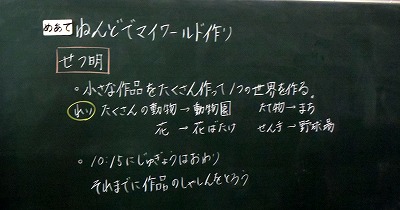 めあて ねんどでマイワールド作り
せつ明
○小さな作品をたくさん作って1つの世界を作る。
れい たくさんの動物→動物園 たて物→まち
花→花ばたけ せん手→野球場
○10:15にじゅぎょうはおわり
それまでに作品のしゃしんをとろう